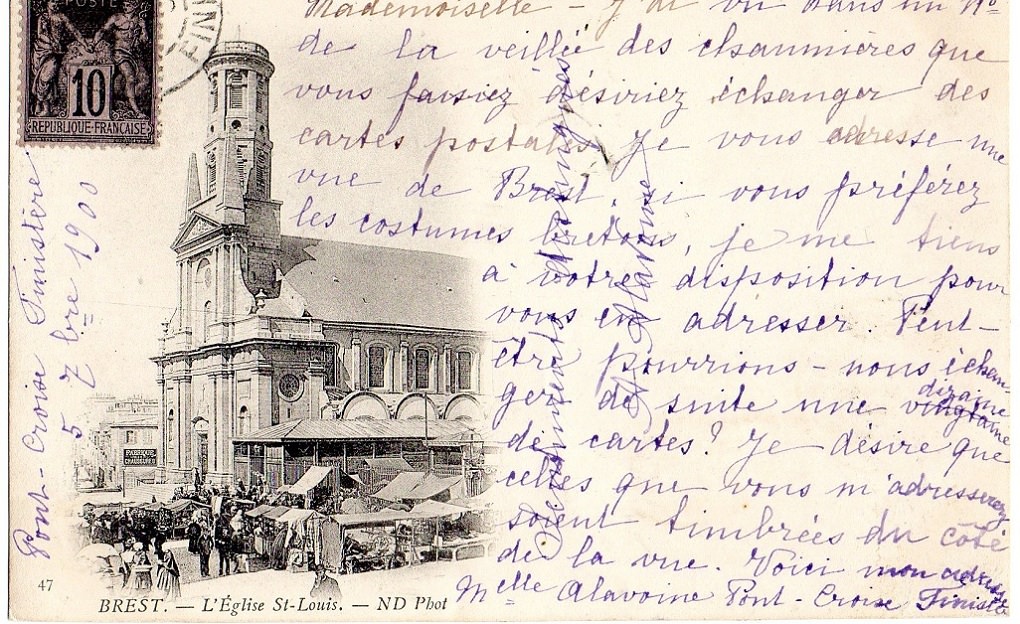 POSTE
10
REPUBLIQUE FRANÇAISE
Pont-Croise Finistère
5 7bre 1900
Mademoiselle - J'ai vu dans un No
de la veillée des chaumières que
vous désiriez échanger des
cartes postales. Je vous adresse une
vue de Brest, si vous préférez
les costumes bretons, je me tiens
à votre disposition pour
vous en adresser. Peut-
être pourrions-nous échan
ger de suite une vingtaine dizaine
de cartes? Je désire que
celles que vous m'adresserez
soient timbrées du côté
de la vue. Voici mon adresse
Melle Alavoine Pont-Croise Finistère
FABRIQUE
CHAUSSURES
47
BREST. — L'Église St-Louis. — ND Phot